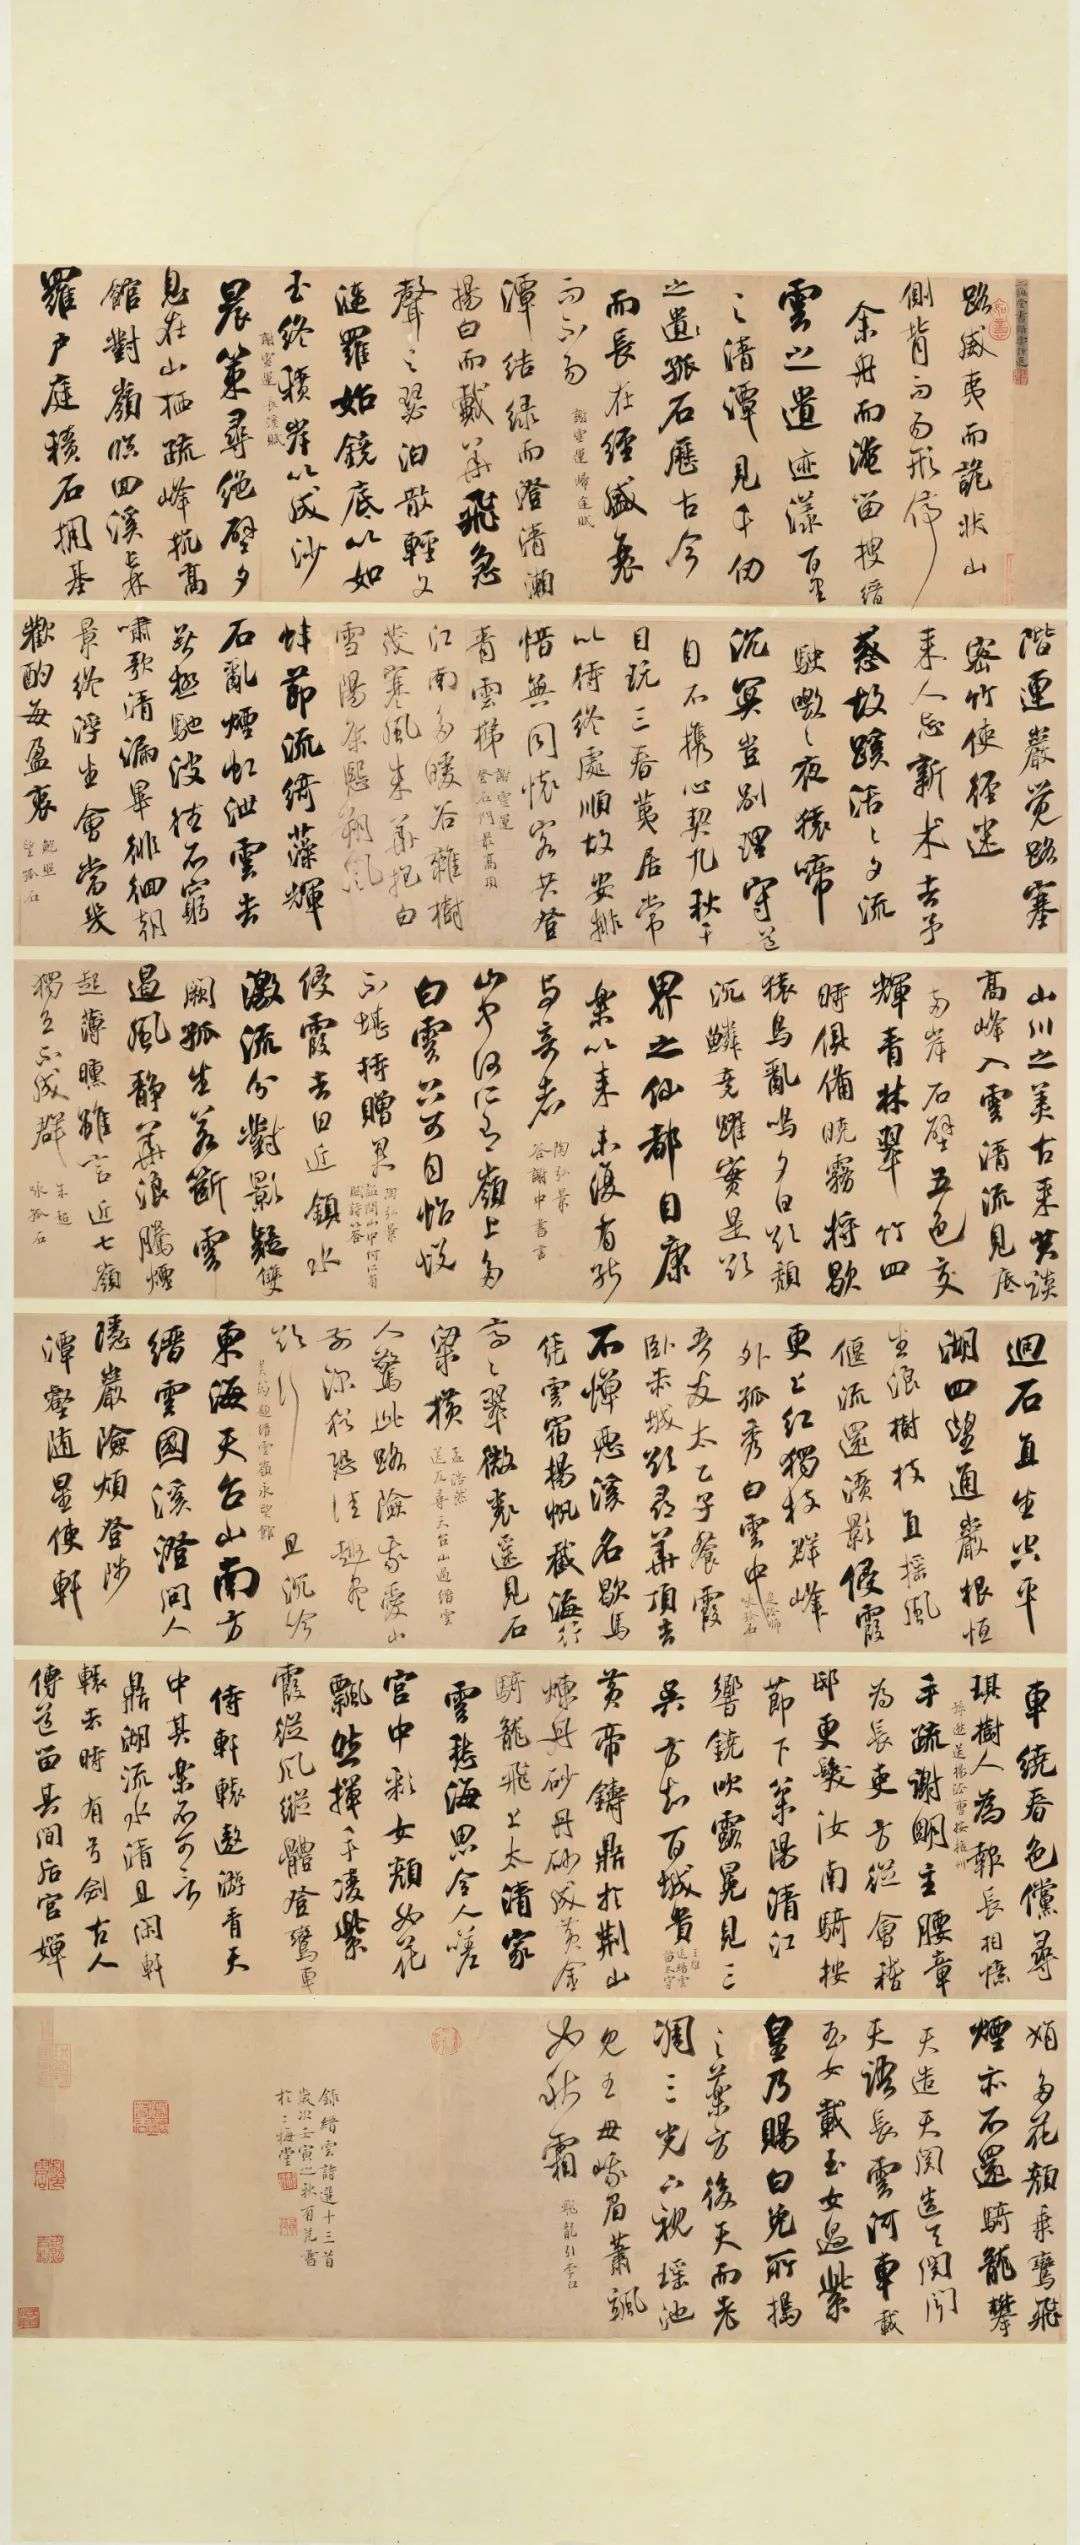 路威夷而詭狀山
側背而易形停
余舟而淹留搜縉
雲之遺迹漾百里
之清潭見千仞
之遺孤石歷古今
而長在經盛衰
而不易
謝靈運歸途賦
潭結綠而澄清瀨
揚白而戴華飛急
聲之瑟汩散輕文
漣羅始鏡底以如
玉終積岸以成沙
謝靈運長溪賦
晨策尋絕壁夕
息在山栖疏峰抗高
館對嶺臨回溪長林
羅戶庭積石擁基
階連巖覺路塞
密竹使徑迷
來人忘新术去子
惑故蹊活活夕流
駛噭噭夜猿啼
沉冥豈別理守道
自不攜心契九秋幹
目玩三春荑居常
以待終處順故安排
惜無同懷客共登
青雲梯
謝靈運
登石門最高頂
江南多暖谷雜樹
茂寒風朱華抱白
雪陽條熙朔風
蚌節流綺藻輝
石亂煙虹泄雲去
無極馳波往不窮
嘯歌清漏畢徘徊朝
景終浮生會當幾
歡酌每盈衷
鮑照
望孤石
山川之美古來共談
高峰入雲清流見底
兩岸石壁五色交
輝青林翠竹四
時俱備曉霧將歇
猿鳥亂鳴夕日欲頹
沉鱗競躍實是欲
界之仙都自康
樂以來未復有能
與奇者
陶弘景
答謝中書書
山中何所有嶺上多
白雲只可自怡悅
不堪持贈君
陶弘景
詔問山中何所有
賦詩答
侵霞去日近鎮水
激流分對影疑雙
闕孤生若斷雲
遏風靜華浪騰煙
起薄曛雖言近七嶺
獨立不成群
朱超
咏孤石
迥石直生空平
湖四望通巖根恒
灑浪樹枝直搖風
偃流還漬影侵霞
更上紅獨拔群峰
外孤秀白雲中
咏孤石
吾友太乙子餐霞
臥赤城欲尋華頂去
不憚惡溪名歇馬
憑雲宿揚帆截海行
高高翠微裏遙見石
梁橫
孟浩然
人驚此路險我愛山
前深猶恐佳趣盡
欲行且沉吟
東海天台山南方
縉雲國溪澄問人
隱巖險煩登陟
潭壑隨星使軒
車繞春色儻尋
琪樹人為報長相憶
手疏謝明主腰章
為長吏方從會稽
邸更發汝南騎按
節下笻陽清江
響鐃吹露冕見三
吳方知百城貴
王維
送縉雲
苗太守
黃帝鑄鼎於荊山
煉丹砂丹砂成黃金
騎龍飛上太清家
雲愁海思令人嗟
宮中彩女顏如花
飄然揮手凌紫
霞從風縱體登鸞車
侍軒轅遨遊青天
中其樂不可言
鼎湖流水清且閑軒
轅去時有弓劍古人
傳道留其間後宮嬋
娟多花顏乘鸞飛
煙亦不還騎龍攀
天造天關造天關聞
天語長雲河車載
玉女載玉女過紫
皇乃賜白兔所搗
之藥方後天而老
凋三光下視瑤池
見王母峨眉蕭颯
如秋霜
飛龍引雲
錄縉雲詩選十三首
歲次壬寅之秋
於三梅堂